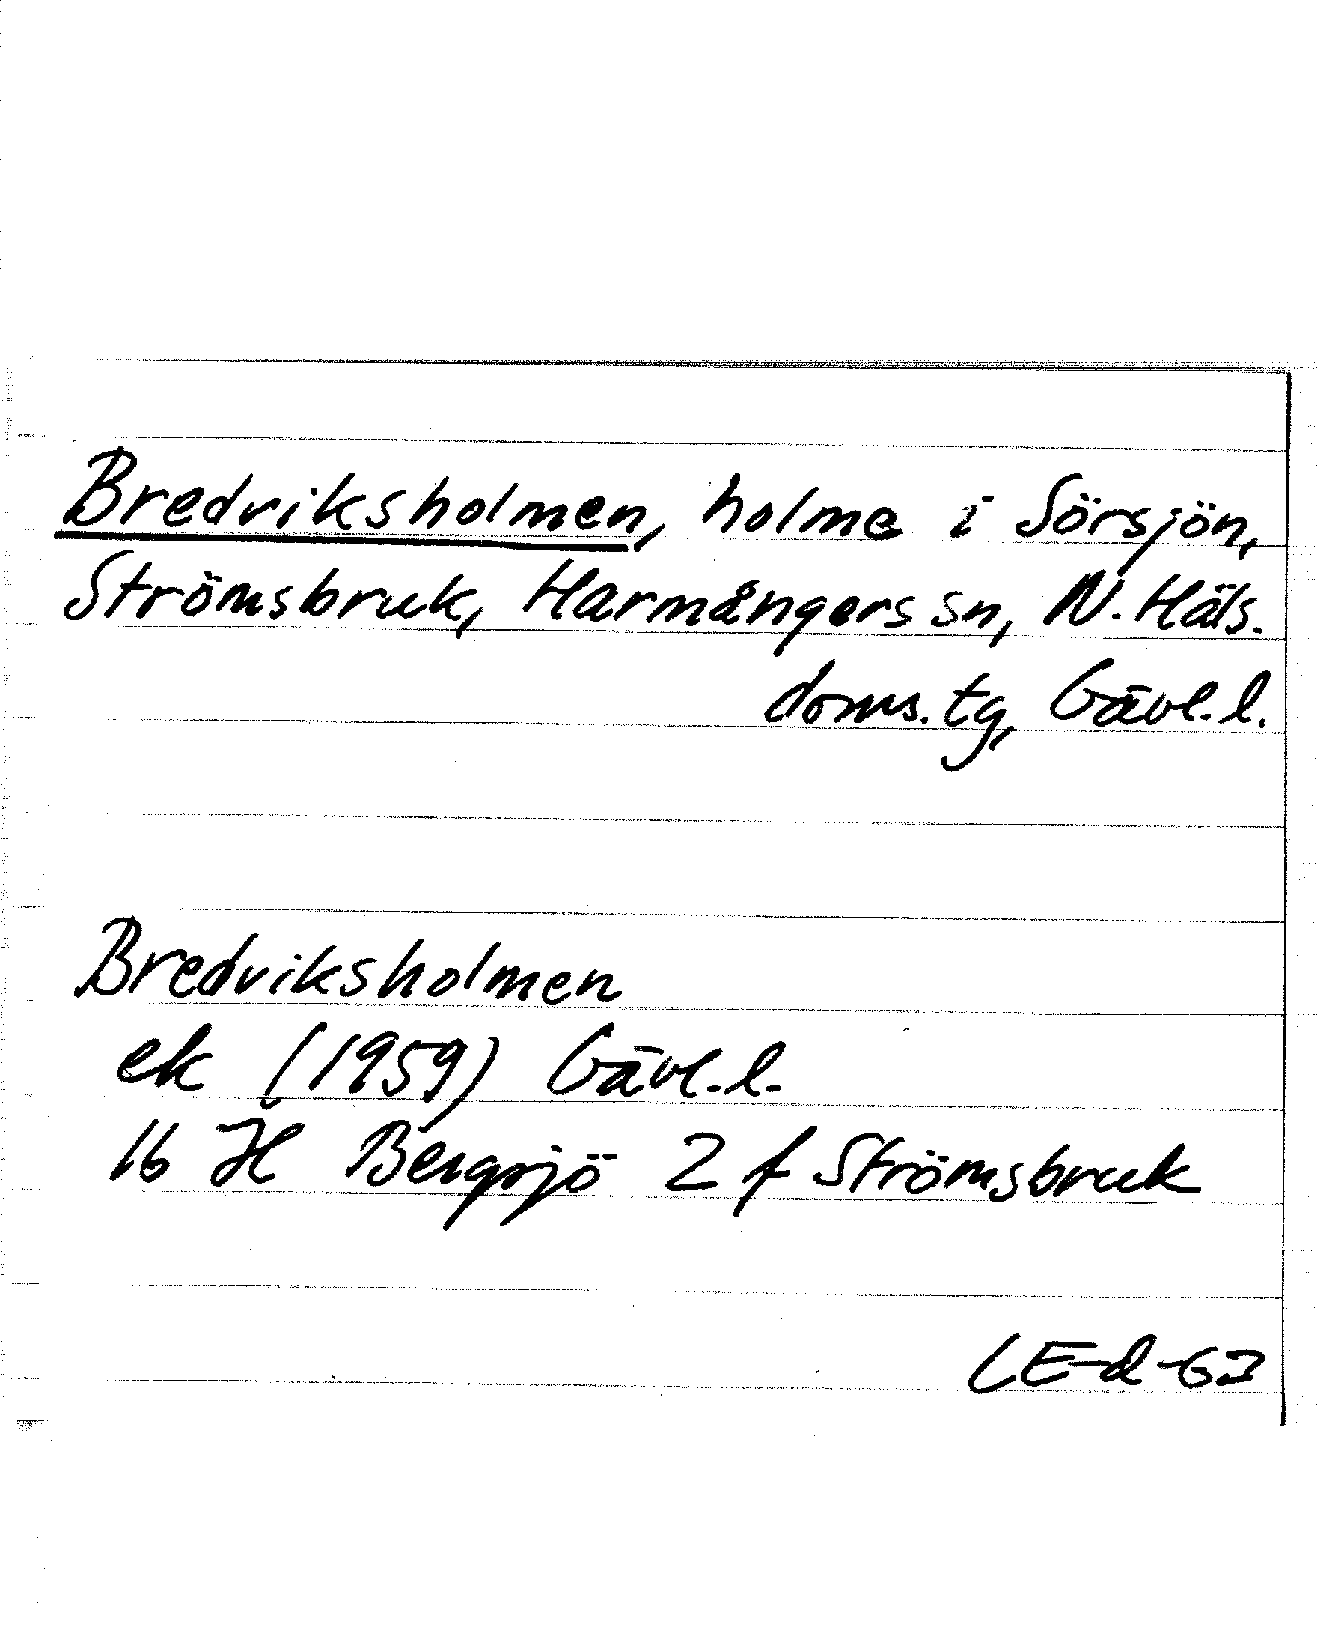 Bredviksholmen, holme i Sörsjön,
Strömsbruk, Harmångers sn, N. Häls.
doms. tg, Gävl. l.
Bredviksholmen
ek (1959) Gävl. l.
16 H Bergsjö 2 f Strömsbruk